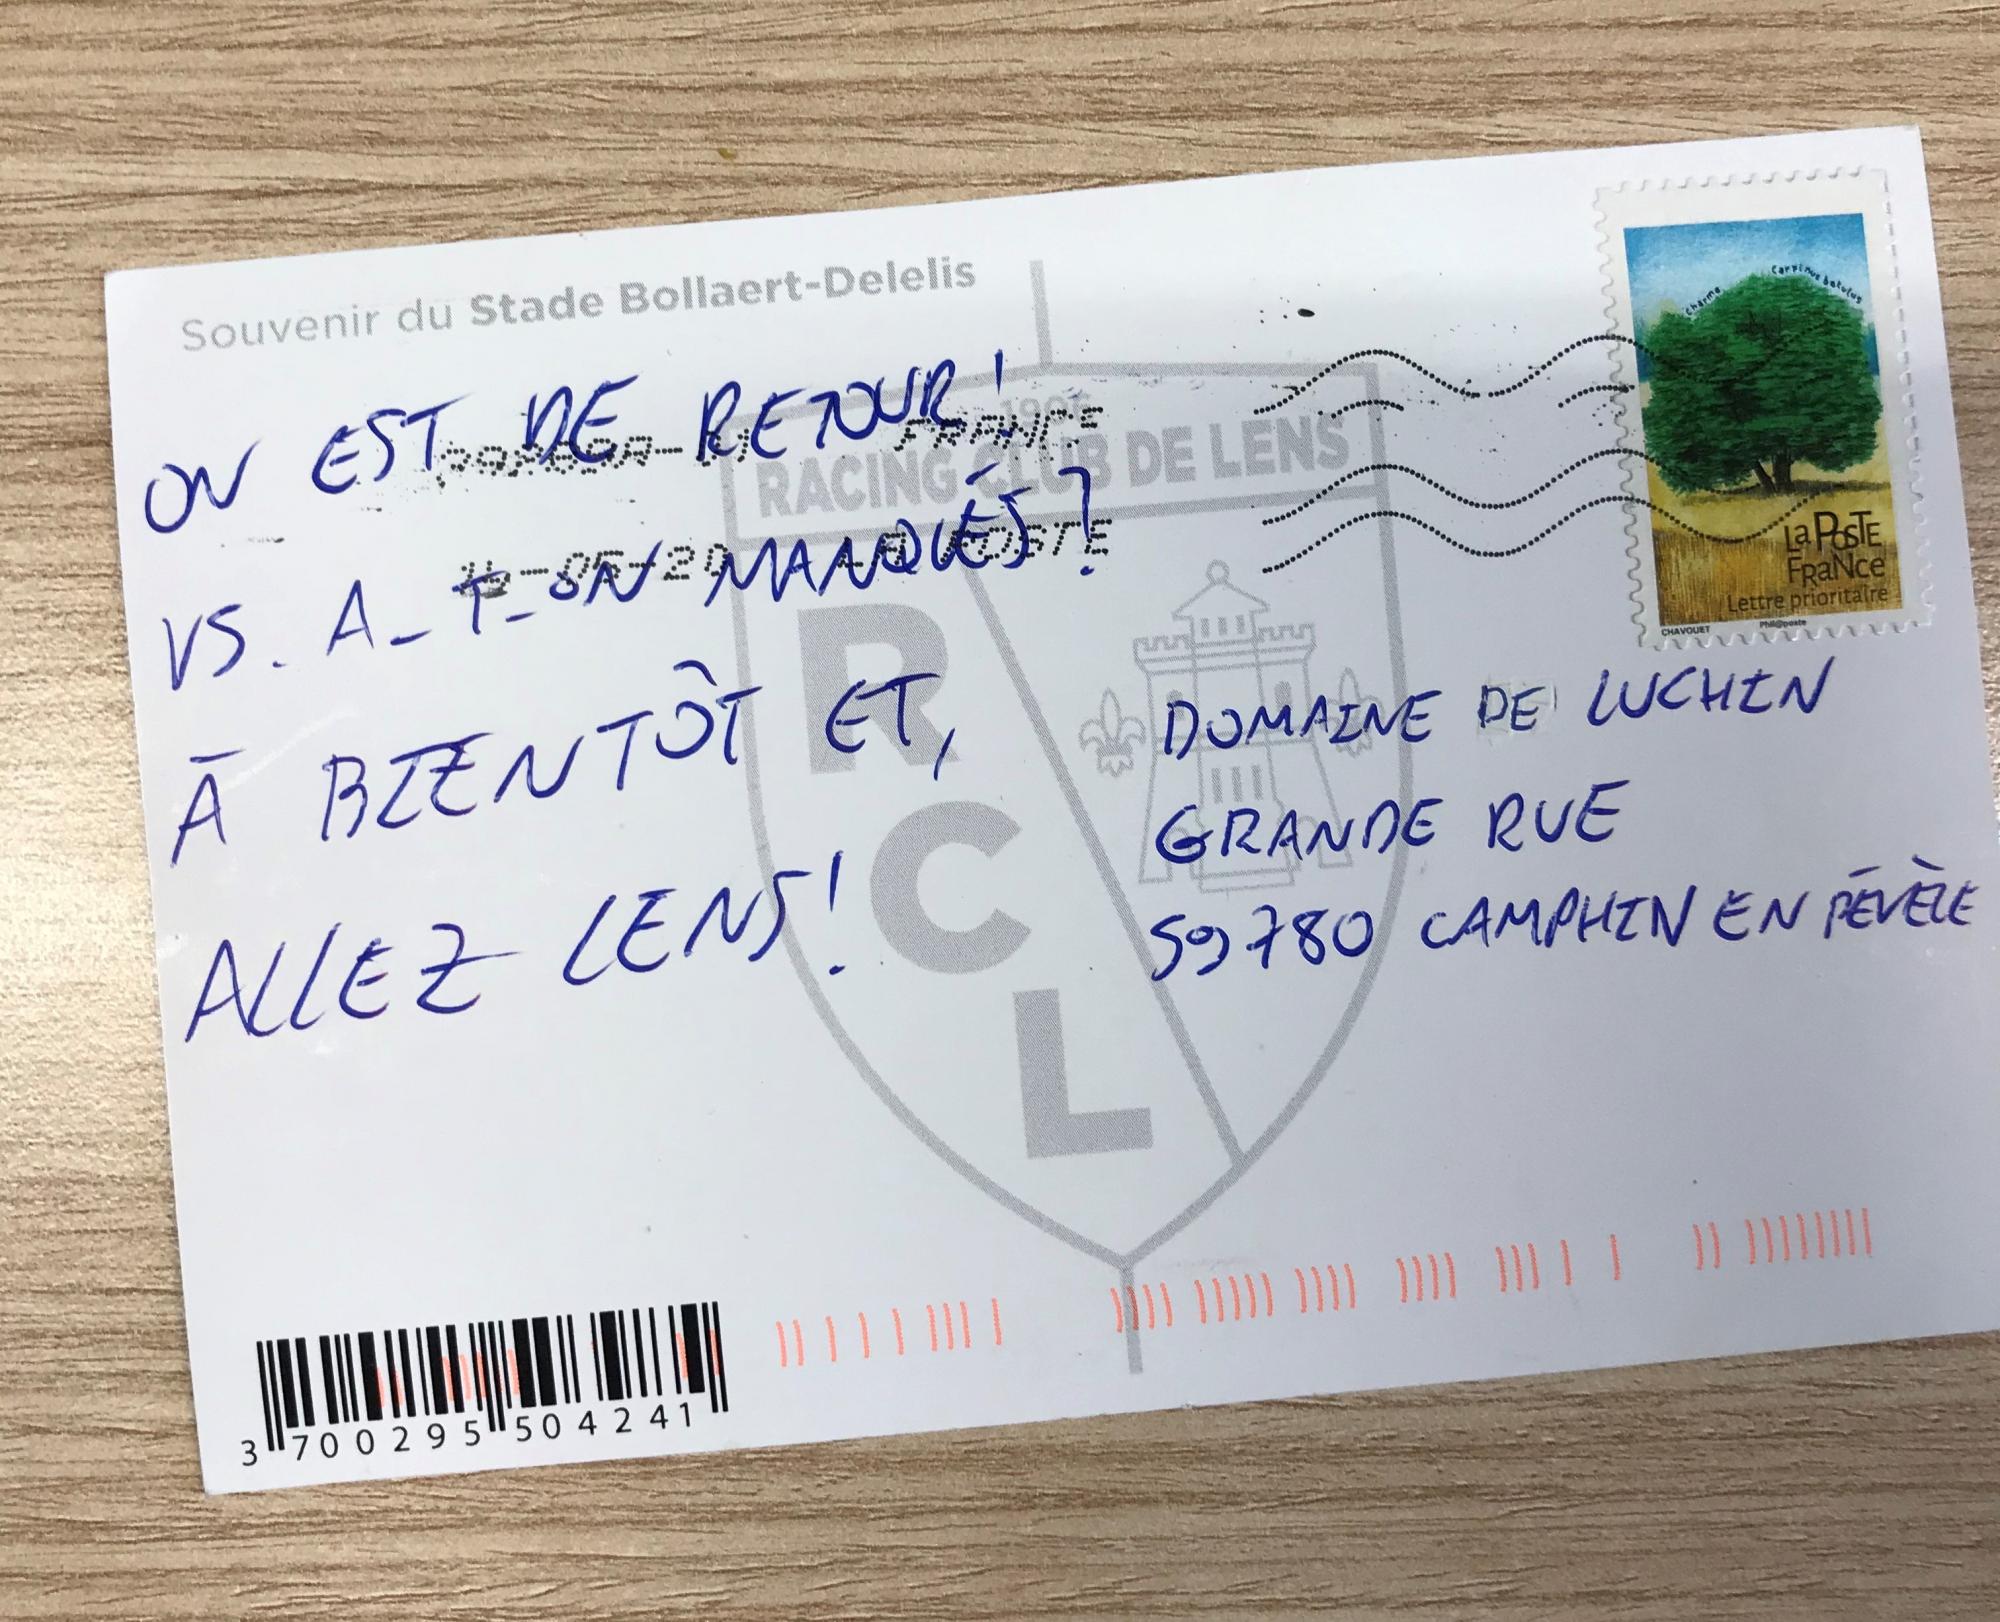 Souvenir du Stade Bollaert-Delelis
ON EST DE RETOUR!
VS. A_T_ON MANQUÉS?
À BIENTÔT ET,
ALLEZ LENS!
FRANCE
-05-20 LA POSTE
RACING CLUB DE LENS
RCL
Charme
Carpinus betulus
La PoSTE
FRaNce
Lettre prioritaire
CHAVOUET
Phil@poste
DOMAINE DE LUCHIN
GRANDE RUE
59780 CAMPHIN EN PÉVÈLE
3 700295 504241